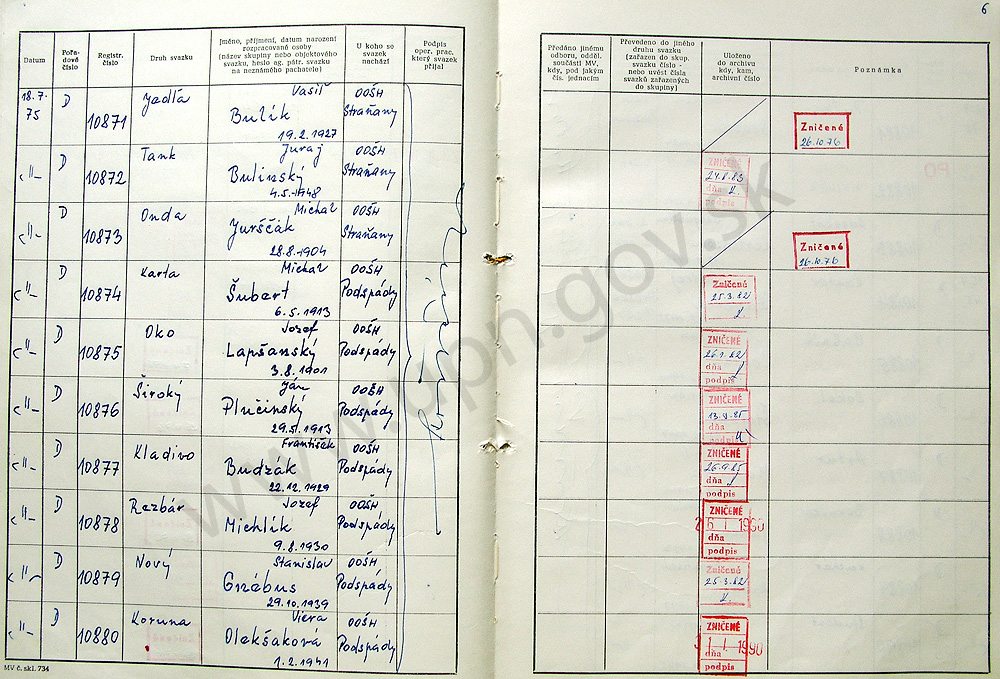 6
Datum
Pořa-
dové
číslo
Registr.
číslo
Druh svazku
Jméno, příjmení, datum narození
rozpracované osoby
(název skupiny nebo objektového
svazku, heslo ag. pátr. svazku
na neznámého pachatele)
U koho se
svazek
nachází
Podpis
oper. prac.
který svazek
přijal
Předáno jinému
odboru, odděl.
součásti MV,
kdy, pod jakým
čís. jednacím
Převedeno do jiného
druhu svazku
(zařazen do skup.
svazku číslo -
nebo uvést čísla
svazků zařazených
do skupiny)
Uloženo
do archivu
kdy, kam,
archivní číslo
Poznámka
18.7.
75
D
10871
Jedľa
Vasiľ
Bulík
19.2.1927
OOŠH
Straňany
Zničené
26.10.76
-"-
D
10872
Tank
Juraj
Bulinský
4.5.1948
OOŠH
Straňany
ZNIČENÉ
24.8.83
dňa
podpis
-"-
D
10873
Onda
Michal
Jurščák
28.8.1904
OOŠH
Straňany
Zničené
26.10.76
-"-
D
10874
Karta
Michal
Šubert
6.5.1913
OOŠH
Podspády
Zničené
25.3.82
-"-
D
10875
Oko
Jozef
Lapšanský
3.8.1901
OOŠH
Podspády
ZNIČENÉ
26.1.82
dňa
podpis
-"-
D
10876
Široký
Ján
Plučinský
29.5.1913
OOŠH
Podspády
ZNIČENÉ
13.9.85
dňa
podpis
-"-
D
10877
Kladivo
František
Budzák
22.12.1929
OOŠH
Podspády
ZNIČENÉ
26.9.85
dňa
podpis
-"-
D
10878
Rezbár
Jozef
Michlík
9.8.1930
OOŠH
Podspády
ZNIČENÉ
26 1 1990
dňa
podpis
-"-
D
10879
Nový
Stanislav
Gnébus
29.10.1939
OOŠH
Podspády
Zničené
25.3.82
-"-
D
10880
Koruna
Viera
Olekšaková
1.2.1941
OOŠH
Podspády
ZNIČENÉ
31 1 1990
dňa
podpis
MV č. skl. 734
www.upn.gov.sk